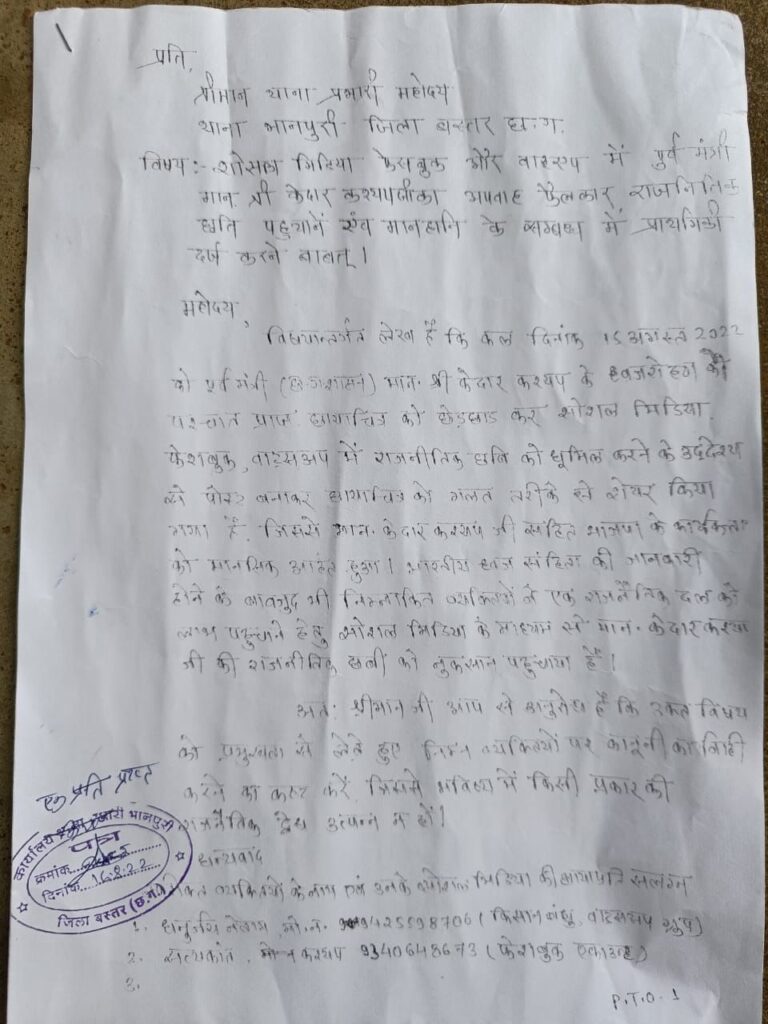 प्रति,
श्रीमान थाना प्रभारी महोदय
थाना भानपुरी जिला बस्तर छ.ग.
विषय :- शोसल मिडिया फेसबुक और वाटसप में पुर्व मंत्री
मान श्री केदार कश्यपजी का अपवाह फैलाकर राजनितिक
छति पहुचानें एंव मानहानि के सम्बन्ध में प्राथमिकी
दर्ज करने बाबत् ।
महोदय,
विषयान्तर्गत लेख है कि कल दिनांक 15 अगस्त 2022
को पूर्व मंत्री (छ.ग.शासन) मान. श्री केदार कश्यप के ध्वजारोहण के
पश्चात प्राप्त छायाचित्र को छेड़छाड़ कर शोशल मिडिया,
फेशबुक, वाट्सअप में राजनीतिक छबि को धूमिल करने के उद्देश्य
से पोस्ट बनाकर छायाचित्र को गलत तरीके से शेयर किया
गया है, जिससे मान. केदार कश्यप जी सहित भाजपा के कार्यकर्ता
को मानसिक आहत हुआ। भारतीय ध्वज संहिता की जानकारी
होने के बावजुद भी निम्नांकित व्यक्तियों ने एक राजनैतिक दल को
लाभ पहुचाने हेतु सोशल मिडिया के माध्यम से मान. केदार कश्यप
जी की राजनीतिक छबी को नुकसान पहुचाया है।
अतः श्रीमान जी आप से अनुरोध है कि उक्त विषय
को प्रमुखता से लेते हुए निम्न व्यक्तियों पर कानूनी कार्यवाही
करने का कष्ट करें, जिससे भविष्य में किसी प्रकार की
राजनैतिक द्वेष उत्पन्न न हों।
एक प्रति प्राप्त
कार्यालय थाना प्रभारी भानपुरी
पत्र
क्रमांक
दिनांक 16.8.22
जिला बस्तर (छ.ग.)
धन्यवाद
व्यक्तियों के नाम एवं उनके सोशल मिडिया की छायाप्रति सलग्न
1. धनुर्जय मो.न. 9425598706 (किसान बंधु, वाट्सअप ग्रुप)
2. सत्यकांत, कश्यप 9340648673 (फेशबुक एकाउन्ट)
3.
P.T.O. 1